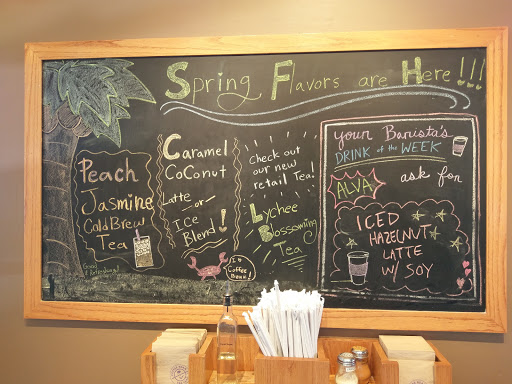 Spring Flavors are Here!!!
Peach
Jasmine
Cold Brew
Tea
Good
& Refreshing!
Caramel
CoCoNut
Latte
or
ICE
Blend!
Check out
our new
retail Tea!
Lychee
Blossoming
Tea
Your Barista's
DRINK of the WEEK
ALVA
ask for
ICED
HAZELNUT
LATTE
W/ SOY